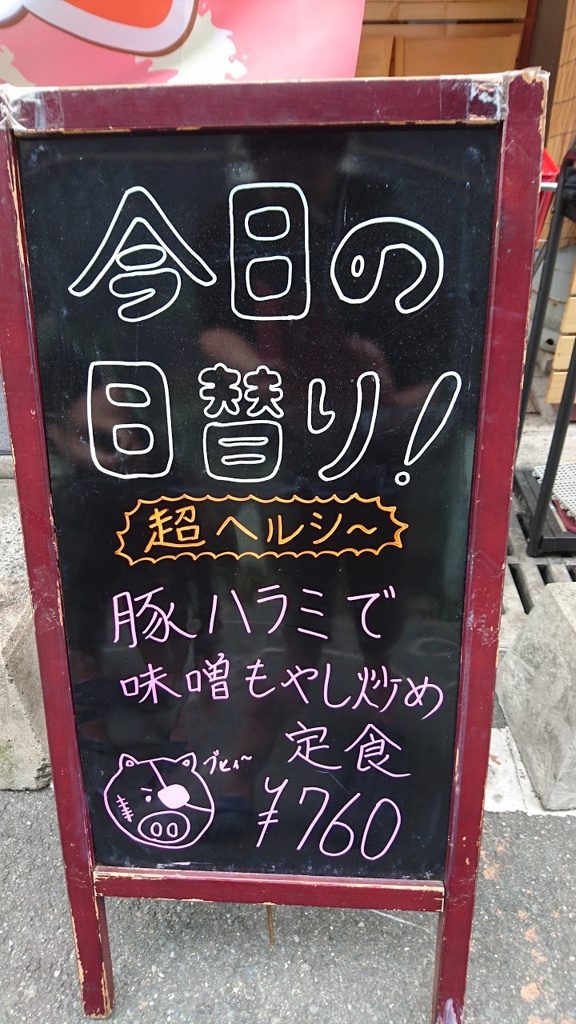 今日の
日替り!
超ヘルシ〜
豚ハラミで
味噌もやし炒め
定食
ブヒィ〜
¥760